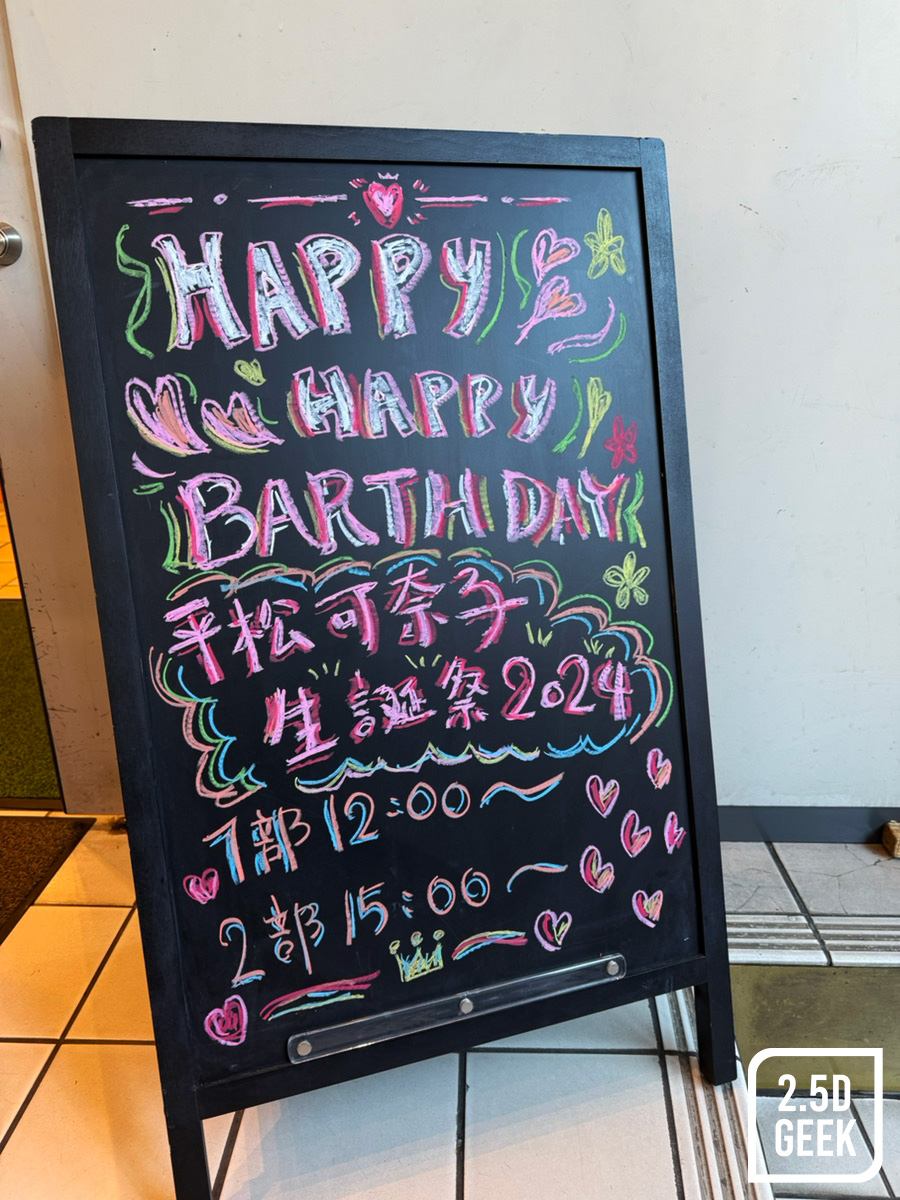 HAPPY
HAPPY
BARTHDAY
平松可奈子
生誕祭2024
1部 12:00〜
2部 15:00〜
2.5D
GEEK